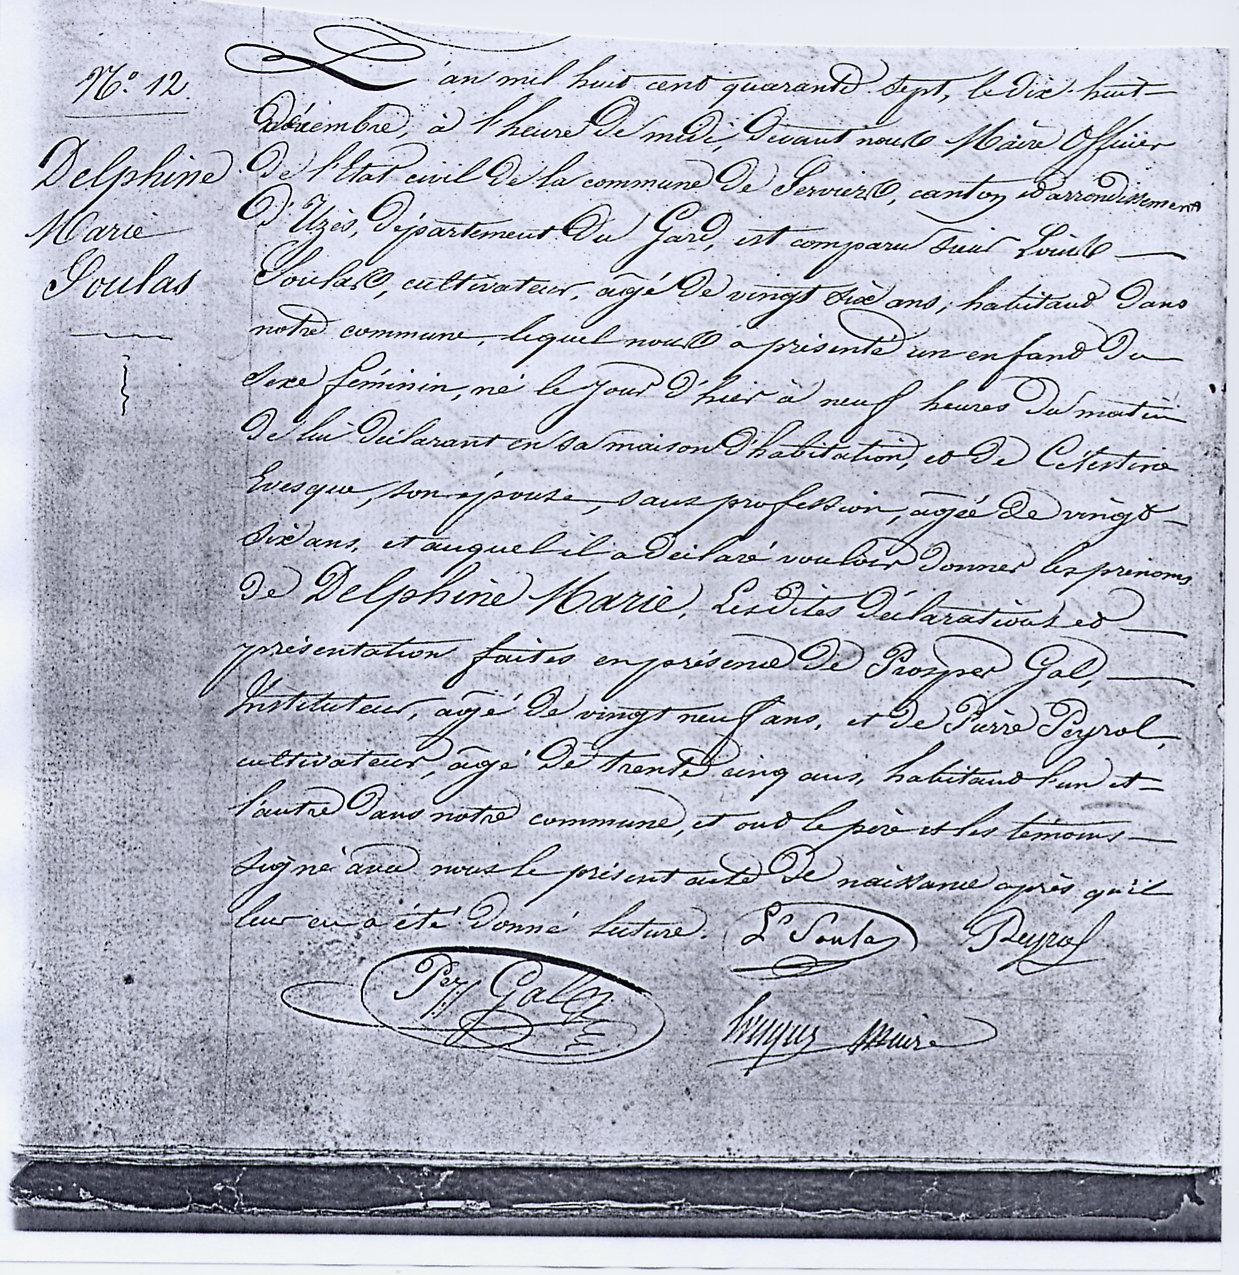 N.o 12
Delphine
Marie
Soulas
L'an mil huit cent quarante sept, le dix-huit
décembre, à l'heure de midi, devant nous Maire Officier
de l'État civil de la commune de Serviers, canton et arrondissement
d'Uzès, département du Gard, est comparu sieur Louis
Soulas, cultivateur, âgé de vingt six ans, habitant dans
notre commune, lequel nous a présenté un enfant du
sexe féminin, né le jour d'hier à neuf heures du matin
de lui déclarant en sa maison d'habitation, et de Célestine
Evesque, son épouse, sans profession, âgée de vingt-
six ans, et auquel il a déclaré vouloir donner les prénoms
de Delphine Marie, Lesdites déclarations et
présentation faites en présence de Prosper Gal,
Instituteur, âgé de vingt neuf ans, et de Pierre Peyrol,
cultivateur, âgé de trente cinq ans, habitant l'un et
l'autre dans notre commune, et ont le père et les témoins
signé avec nous le présent acte de naissance après qu'il
leur en a été donné lecture. Ls Soulas Peyrol
Per Gal
maire